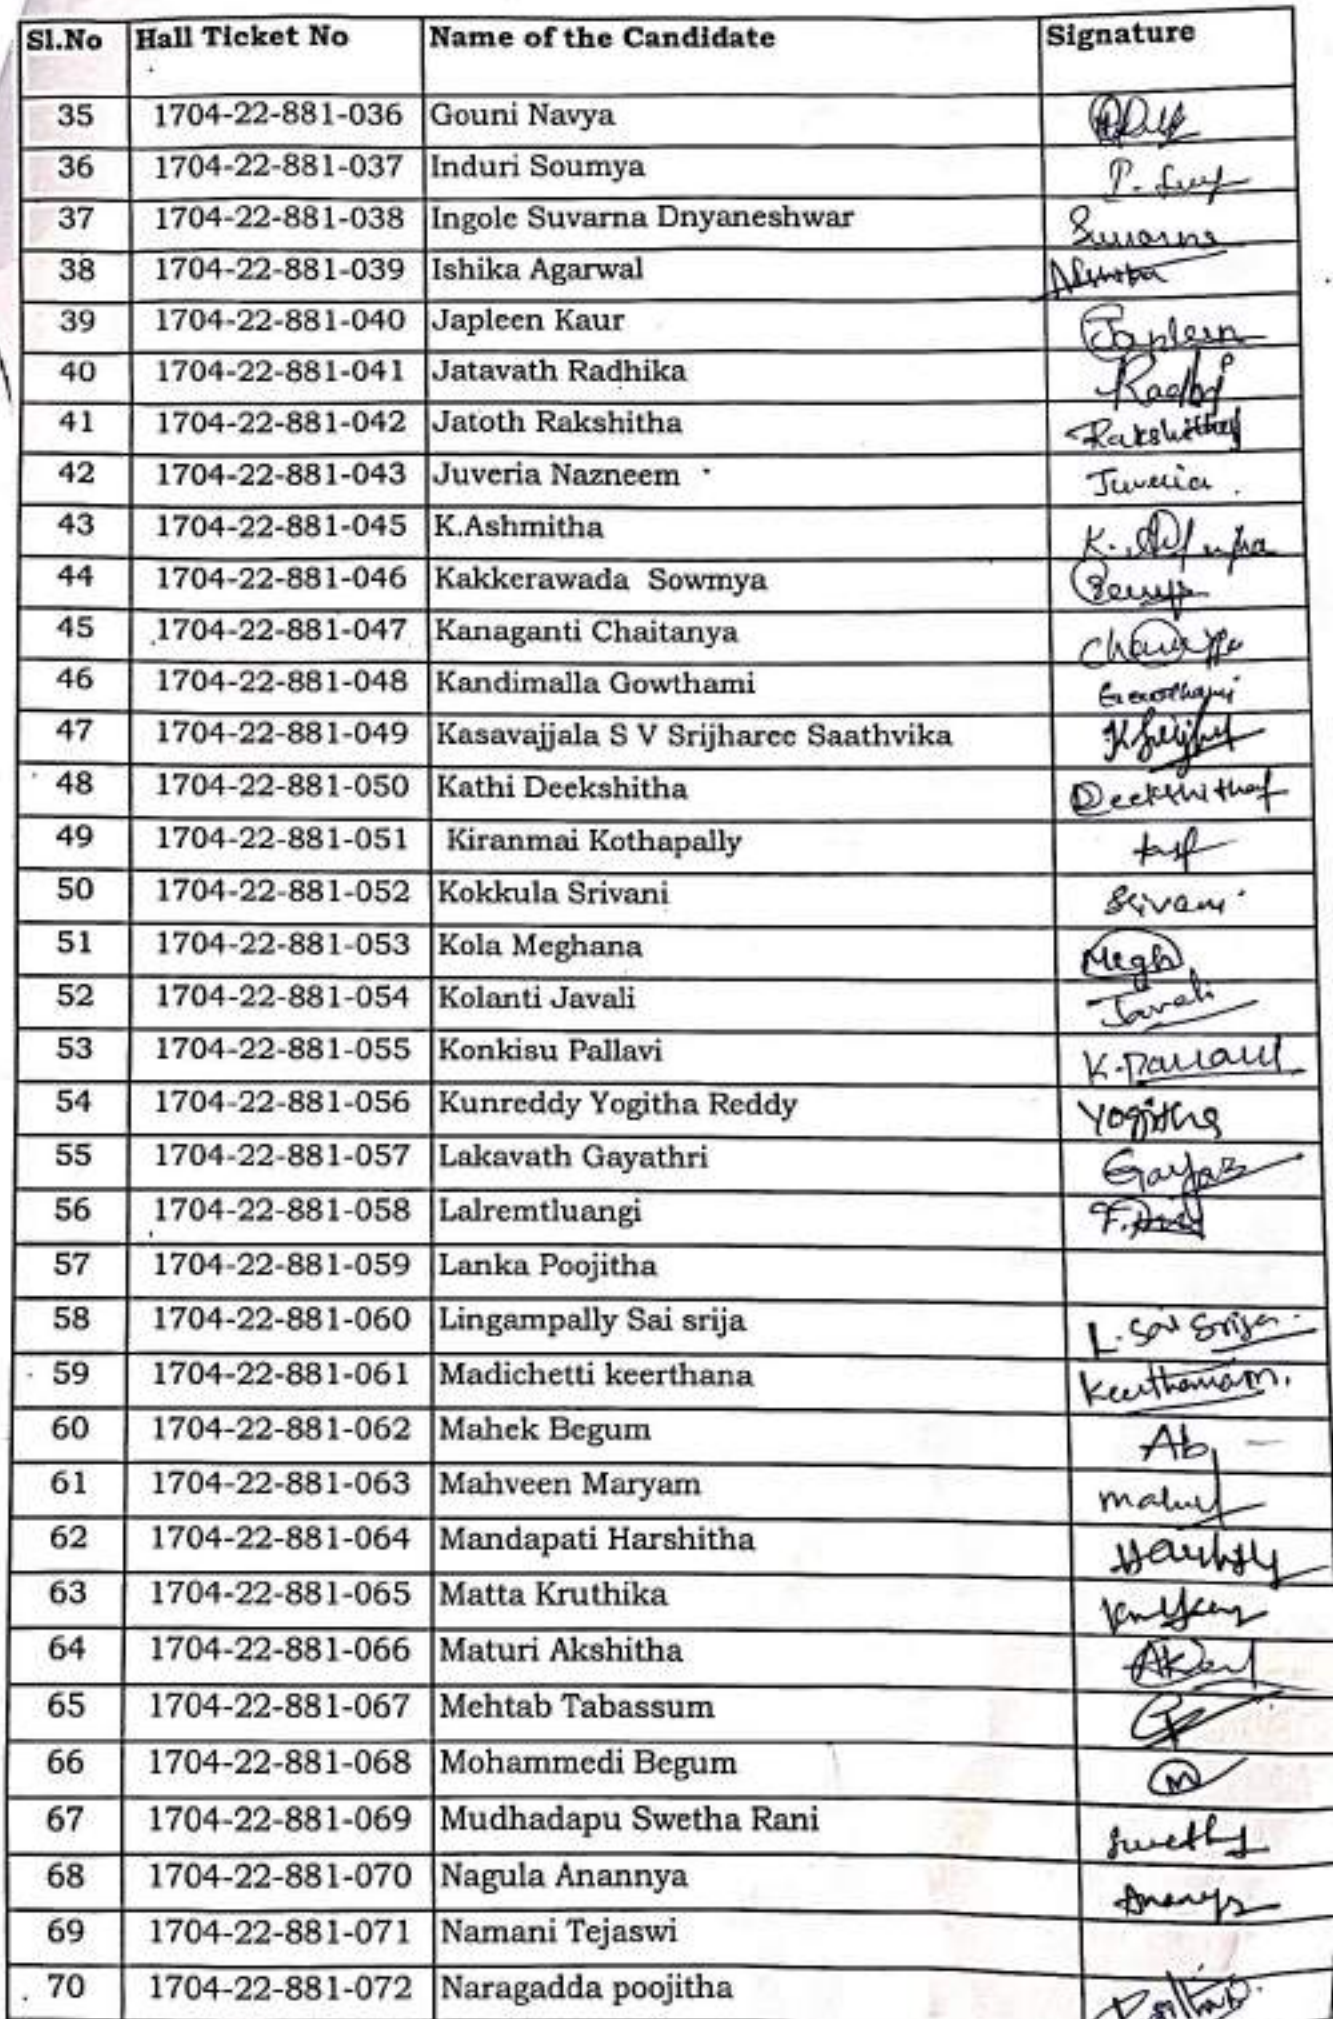 Sl.No Hall Ticket No Name of the Candidate Signature
35 1704-22-881-036 Gouni Navya
36 1704-22-881-037 Induri Soumya
37 1704-22-881-038 Ingole Suvarna Dnyaneshwar Suvarna
38 1704-22-881-039 Ishika Agarwal
39 1704-22-881-040 Japleen Kaur Japleen
40 1704-22-881-041 Jatavath Radhika
41 1704-22-881-042 Jatoth Rakshitha Rakshitha
42 1704-22-881-043 Juveria Nazneem Juveria
43 1704-22-881-045 K.Ashmitha
44 1704-22-881-046 Kakkerawada Sowmya
45 1704-22-881-047 Kanaganti Chaitanya
46 1704-22-881-048 Kandimalla Gowthami Gowthami
47 1704-22-881-049 Kasavajjala S V Srijharee Saathvika
48 1704-22-881-050 Kathi Deekshitha Deekshitha
49 1704-22-881-051 Kiranmai Kothapally
50 1704-22-881-052 Kokkula Srivani Srivani
51 1704-22-881-053 Kola Meghana Megh
52 1704-22-881-054 Kolanti Javali Javali
53 1704-22-881-055 Konkisu Pallavi K.Pallavi
54 1704-22-881-056 Kunreddy Yogitha Reddy Yogitha
55 1704-22-881-057 Lakavath Gayathri
56 1704-22-881-058 Lalremtluangi
57 1704-22-881-059 Lanka Poojitha
58 1704-22-881-060 Lingampally Sai srija L. Sai Srija
59 1704-22-881-061 Madichetti keerthana
60 1704-22-881-062 Mahek Begum
61 1704-22-881-063 Mahveen Maryam
62 1704-22-881-064 Mandapati Harshitha
63 1704-22-881-065 Matta Kruthika
64 1704-22-881-066 Maturi Akshitha
65 1704-22-881-067 Mehtab Tabassum
66 1704-22-881-068 Mohammedi Begum
67 1704-22-881-069 Mudhadapu Swetha Rani
68 1704-22-881-070 Nagula Anannya
69 1704-22-881-071 Namani Tejaswi
70 1704-22-881-072 Naragadda poojitha